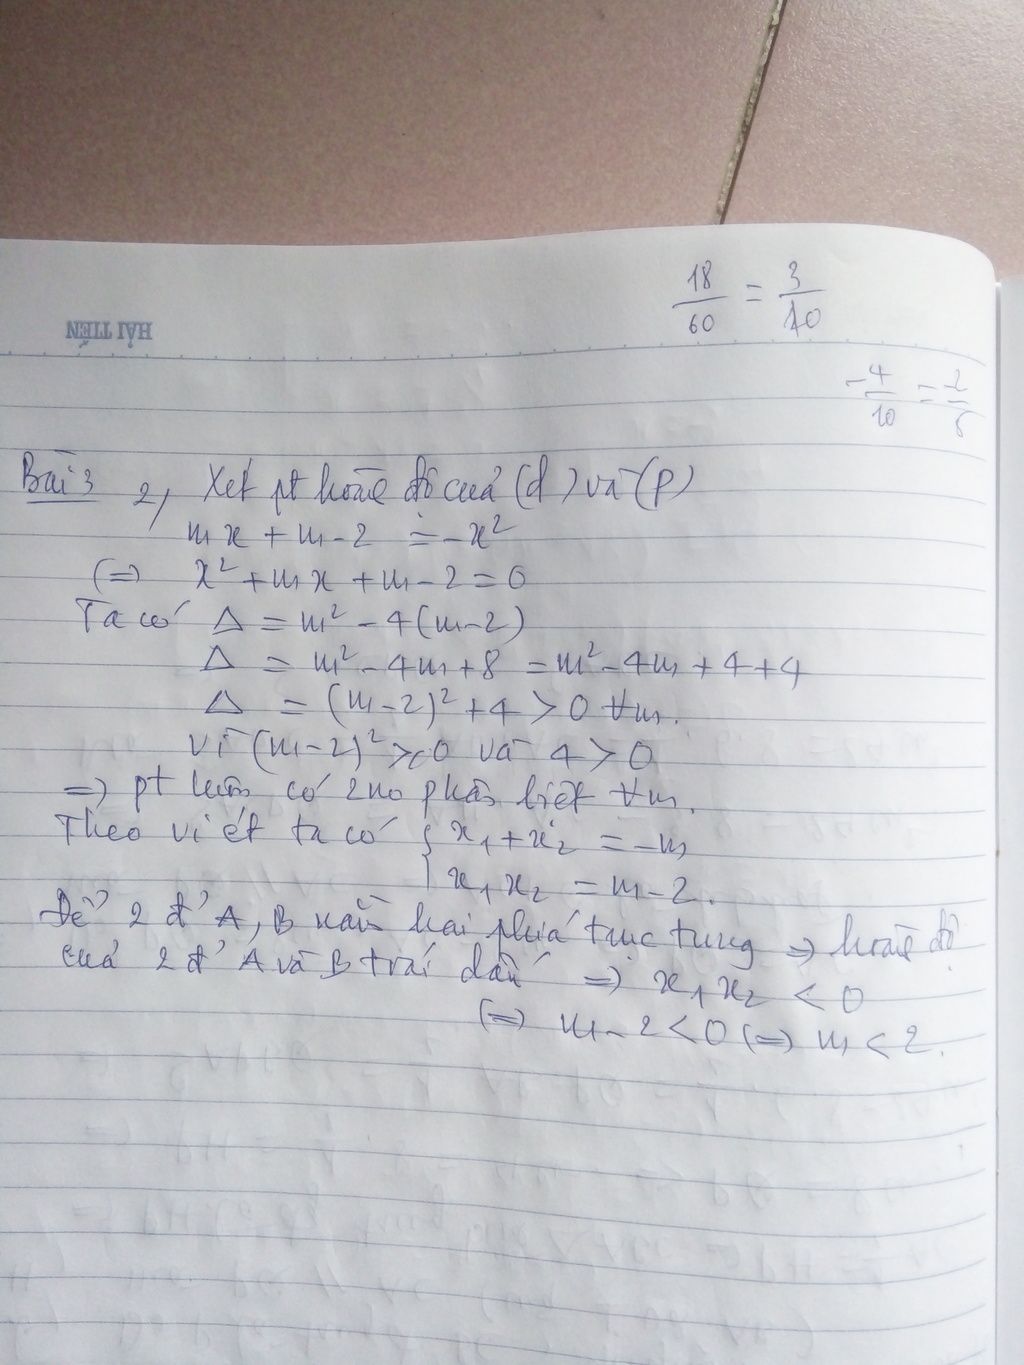 18/60 = 3/10
HẢI TIẾN
-4/10 =
Bài 3 2, Xét pt hoành độ của (d) và (P)
mx + m - 2 = -x²
(=) x² + mx + m - 2 = 0
Ta có Δ = m² - 4(m-2)
Δ = m² - 4m + 8 = m² - 4m + 4 + 4
Δ = (m-2)² + 4 > 0 ∀m.
vì (m-2)² ≥ 0 và 4 > 0
=> pt luôn có 2 no phân biệt ∀m.
Theo vi ét ta có { x₁ + x₂ = -m
x₁x₂ = m - 2.
Để 2 đ' A, B nằm hai phía trục tung => hoành độ
của 2 đ' A và B trái dấu => x₁x₂ < 0
(=) m - 2 < 0 (=) m < 2.